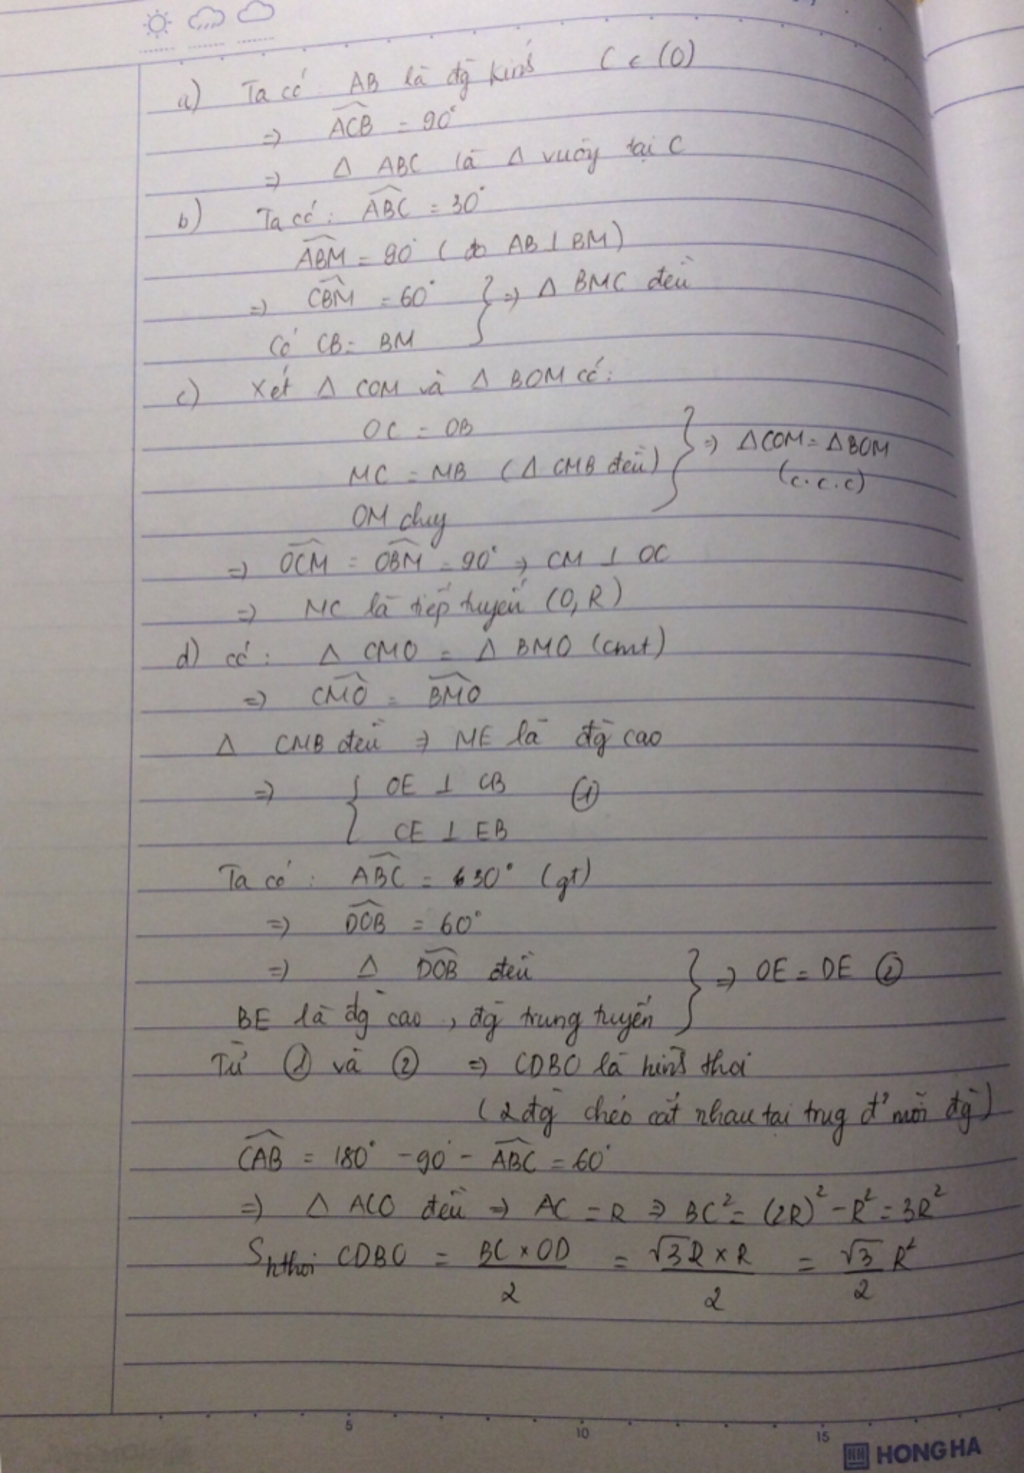 a) Ta có AB là đg kính C ∈ (O)
=> ACB = 90°
=> Δ ABC là Δ vuông tại C
b) Ta có: ABC = 30°
ABM = 90° (do AB ⊥ BM)
=> CBM = 60° } => Δ BMC đều
Có CB = BM
c) Xét Δ COM và Δ BOM có:
OC = OB
MC = MB (Δ CMB đều) } => ΔCOM = ΔBOM
(c.c.c)
OM chug
=> OCM = OBM = 90° => CM ⊥ OC
=> MC là tiếp tuyến (O,R)
d) có: Δ CMO = Δ BMO (cmt)
=> CMO = BMO
Δ CMB đều => ME là đg cao
=> { OE ⊥ CB ①
CE ⊥ EB
Ta có: ABC = 30° (gt)
=> DOB = 60°
=> Δ DOB đều } => OE = DE ②
BE là đg cao, đg trung tuyến
Từ ① và ② => CDBO là hình thoi
(2 đg chéo cắt nhau tại trug đ' mỗi đg)
CAB = 180° - 90° - ABC = 60°
=> Δ ACO đều => AC = R => BC² = (2R)² - R² = 3R²
Shthoi CDBO = BC × OD / 2 = √3R × R / 2 = √3/2 R²
5 10 15
HONG HA